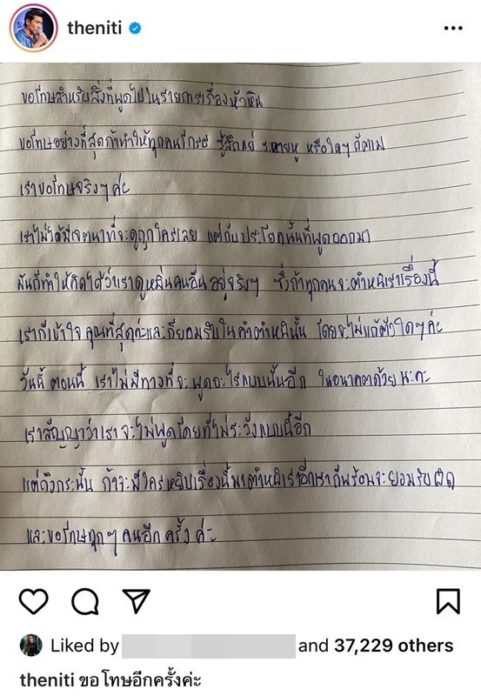 theniti
ขอโทษสำหรับสิ่งที่พูดไปในรายการเรื่องหัวหิน
ขอโทษอย่างที่สุดถ้าทำให้ทุกคนโกรธ รู้สึกแย่ ระคายหู หรือใดๆก็ตาม
เราขอโทษจริงๆค่ะ
เราไม่ได้มีเจตนาที่จะดูถูกใครเลย แต่กับประโยคนั้นที่พูดออกมา
มันก็ทำให้คิดได้ว่าเราดูหมิ่นคนอื่นอยู่จริงๆ ซึ่งถ้าทุกคนจะตำหนิเราเรื่องนี้
เราก็เข้าใจคุณที่สุดค่ะและก็ยอมรับในคำตำหนินั้น โดยจะไม่แก้ตัวใดๆค่ะ
วันนี้ ตอนนี้ เราไม่มีทางที่จะพูดอะไรแบบนั้นอีก ในอนาคตด้วยนะคะ
เราสัญญาว่าเราจะไม่พูดโดยที่ไม่ระวังแบบนี้อีก
แต่ถึงกระนั้น ถ้าจะมีใครหยิบเรื่องนี้มาตำหนิเราอีกเราก็พร้อมจะยอมรับผิด
และขอโทษทุกๆคนอีกครั้งค่ะ
Liked by and 37,229 others
theniti ขอโทษอีกครั้งค่ะ